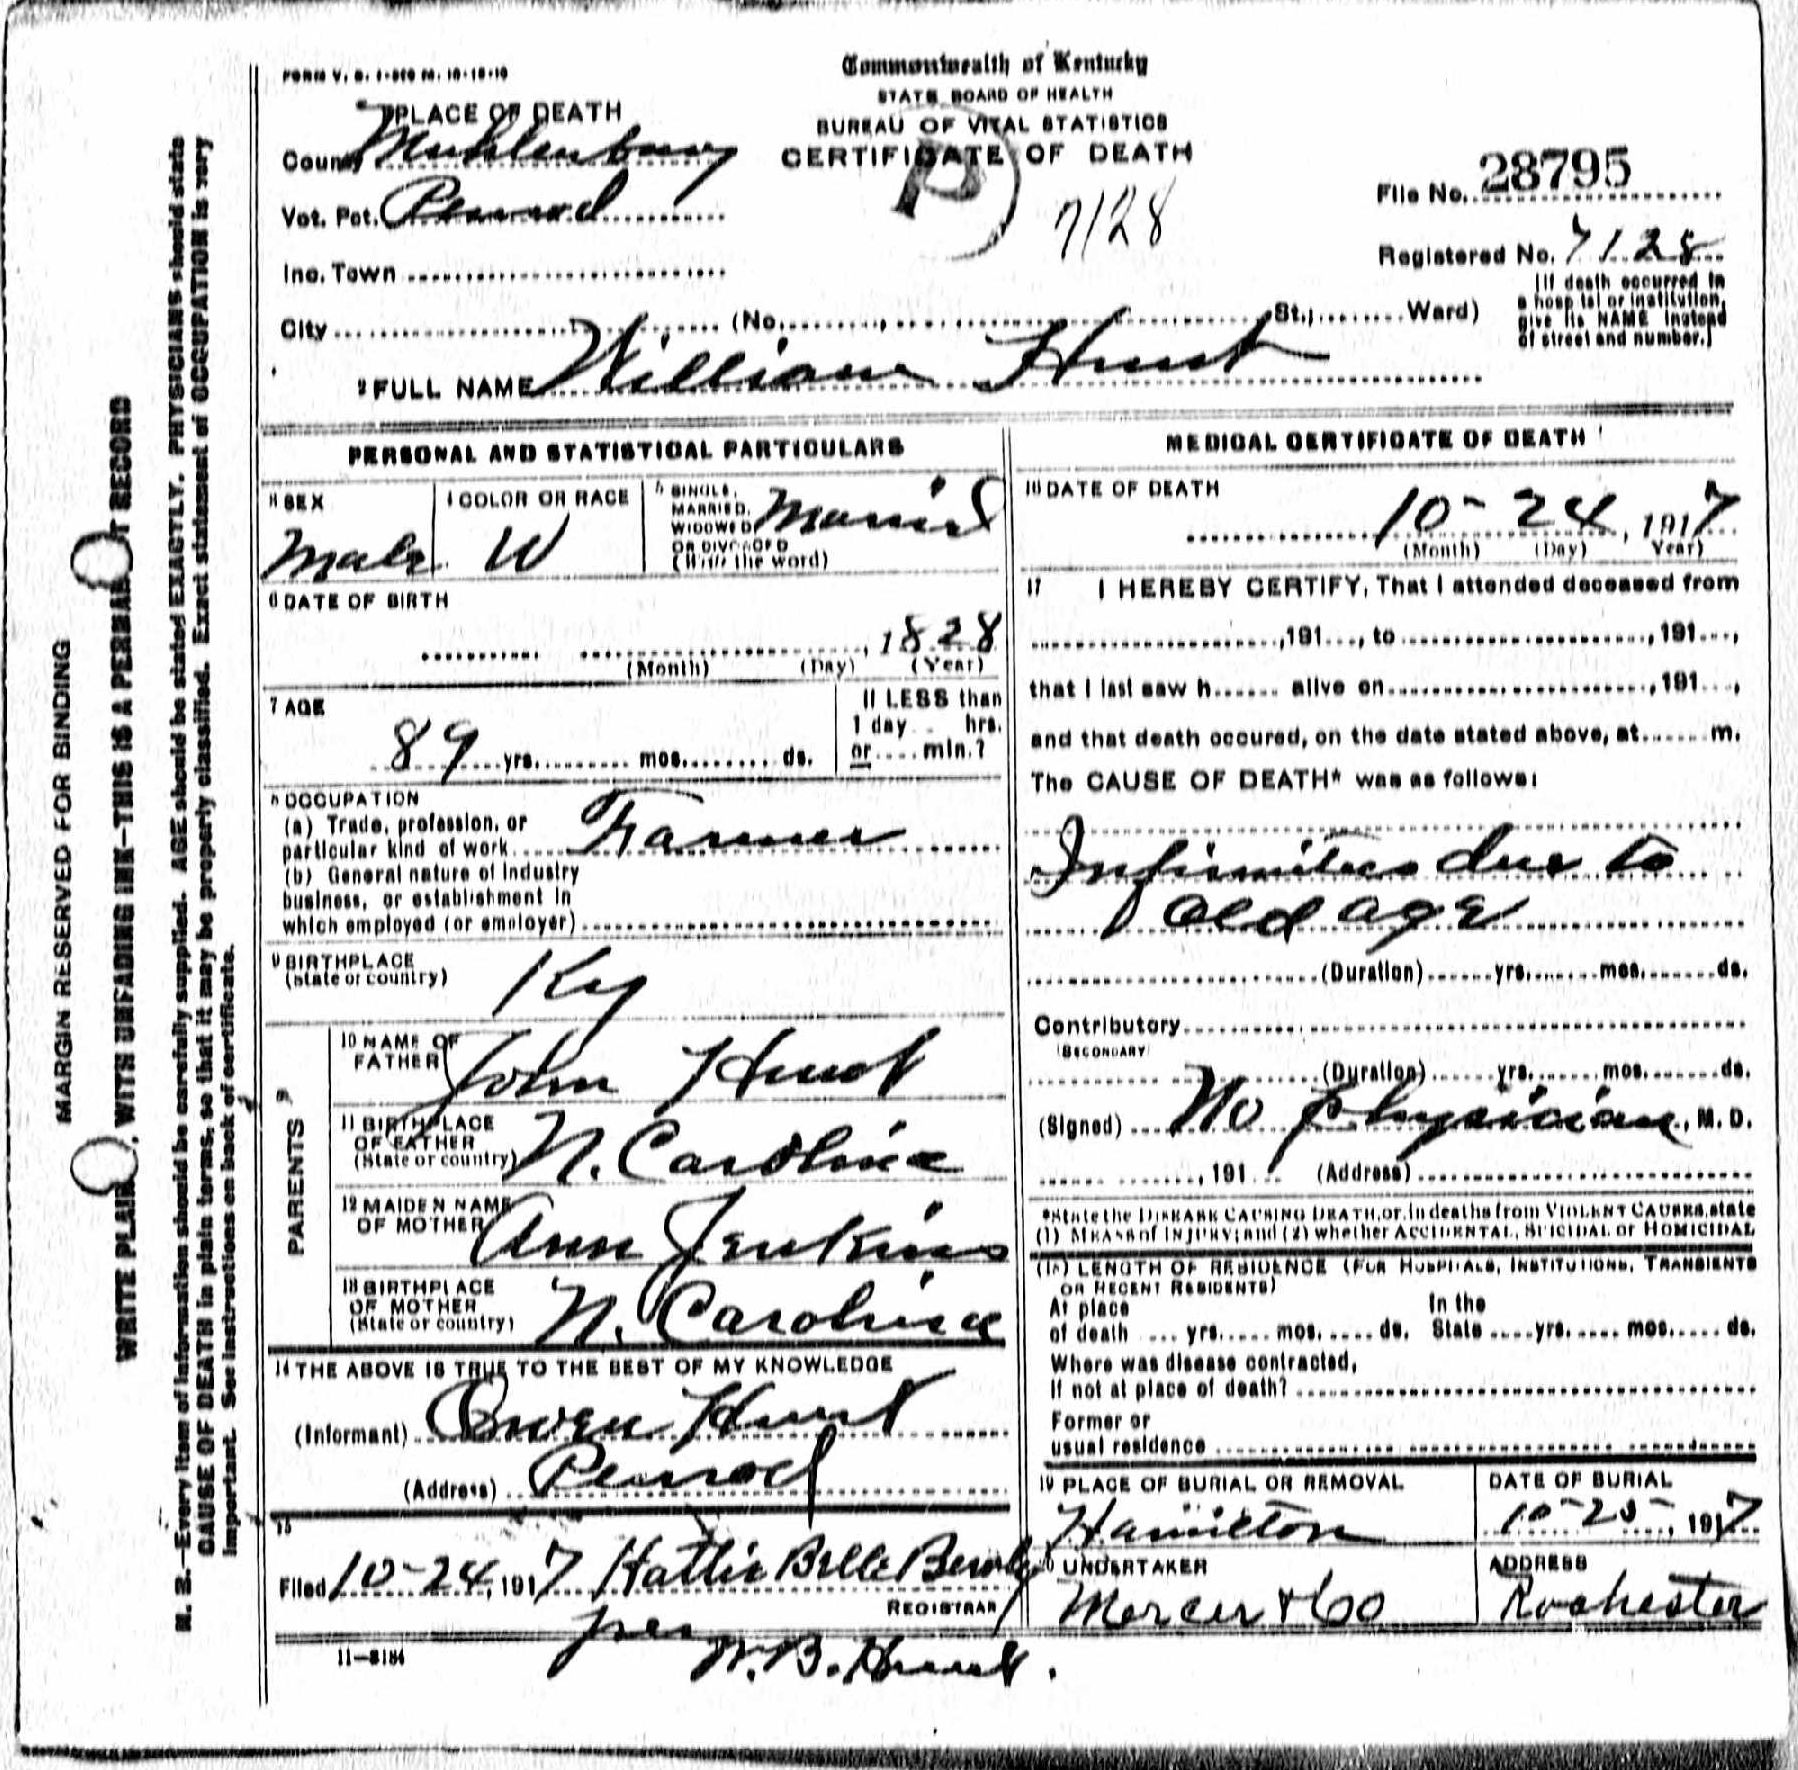 FORM V. S. 1-
Commonwealth of Kentucky
STATE BOARD OF HEALTH
BUREAU OF VITAL STATISTICS
CERTIFICATE OF DEATH
1 PLACE OF DEATH
County Muhlenburg
Vot. Pct. Penrod
Inc. Town
City (No. St.; Ward)
File No. 28795
7128
Registered No. 7128
[If death occurred in
a hospital or institution,
give its NAME instead
of street and number.]
2 FULL NAME William Hunt
PERSONAL AND STATISTICAL PARTICULARS
3 SEX
Male
4 COLOR OR RACE
W
5 SINGLE,
MARRIED,
WIDOWED
OR DIVORCED
(Write the word)
Married
6 DATE OF BIRTH
, 1828
(Month) (Day) (Year)
7 AGE
89 yrs. mos. ds.
If LESS than
1 day hrs.
or min.?
8 OCCUPATION
(a) Trade, profession, or
particular kind of work Farmer
(b) General nature of industry
business, or establishment in
which employed (or employer)
9 BIRTHPLACE
(State or country)
Ky
PARENTS
10 NAME OF
FATHER John Hunt
11 BIRTHPLACE
OF FATHER
(State or country) N. Carolina
12 MAIDEN NAME
OF MOTHER Ann Jenkins
13 BIRTHPLACE
OF MOTHER
(State or country) N. Carolina
14 THE ABOVE IS TRUE TO THE BEST OF MY KNOWLEDGE
(Informant) Owen Hunt
(Address) Penrod
15
Filed 10-24, 1917 Hattie Belle
REGISTRAR
per W. B. Hunt.
11-3184
MEDICAL CERTIFICATE OF DEATH
16 DATE OF DEATH
10-24, 1917
(Month) (Day) Year)
17 I HEREBY CERTIFY, That I attended deceased from
,191 , to ,191 ,
that I last saw h alive on ,191 ,
and that death occured, on the date stated above, at m.
The CAUSE OF DEATH* was as follows:
Infirmities due to
old age
(Duration) yrs. mos. ds.
Contributory
(SECONDARY)
(Duration) yrs. mos. ds.
(Signed) No physician, M. D.
, 191 (Address)
*State the DISEASE CAUSING DEATH, or, in deaths from VIOLENT CAUSES, state
(1) MEANS of INJURY; and (2) whether ACCIDENTAL, SUICIDAL or HOMICIDAL
(18) LENGTH OF RESIDENCE (FOR HOSPITALS, INSTITUTIONS, TRANSIENTS
OR RECENT RESIDENTS)
At place In the
of death yrs. mos. ds. State yrs. mos. ds.
Where was disease contracted,
If not at place of death?
Former or
usual residence
19 PLACE OF BURIAL OR REMOVAL
Hamilton
DATE OF BURIAL
10-25-, 1917
20 UNDERTAKER
Mercer & Co
ADDRESS
Rochester
MARGIN RESERVED FOR BINDING
WRITE PLAIN, WITH UNFADING INK—THIS IS A PERMANT RECORD
N. B.—Every item of information should be carefully supplied. AGE should be stated EXACTLY. PHYSICIANS should state
CAUSE OF DEATH in plain terms, so that it may be properly classified. Exact statement of OCCUPATION is very
important. See instructions on back of certificate.